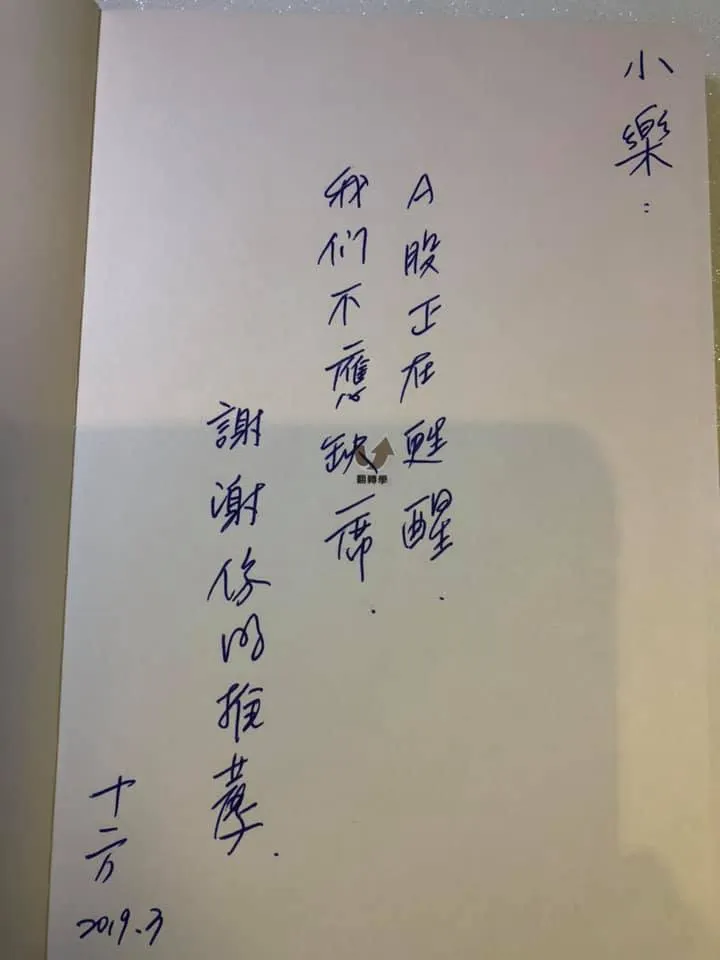 小樂：
A股正在甦醒.
我们不應缺席.
謝謝你的推薦.
十二万
2019.3
翻轉學